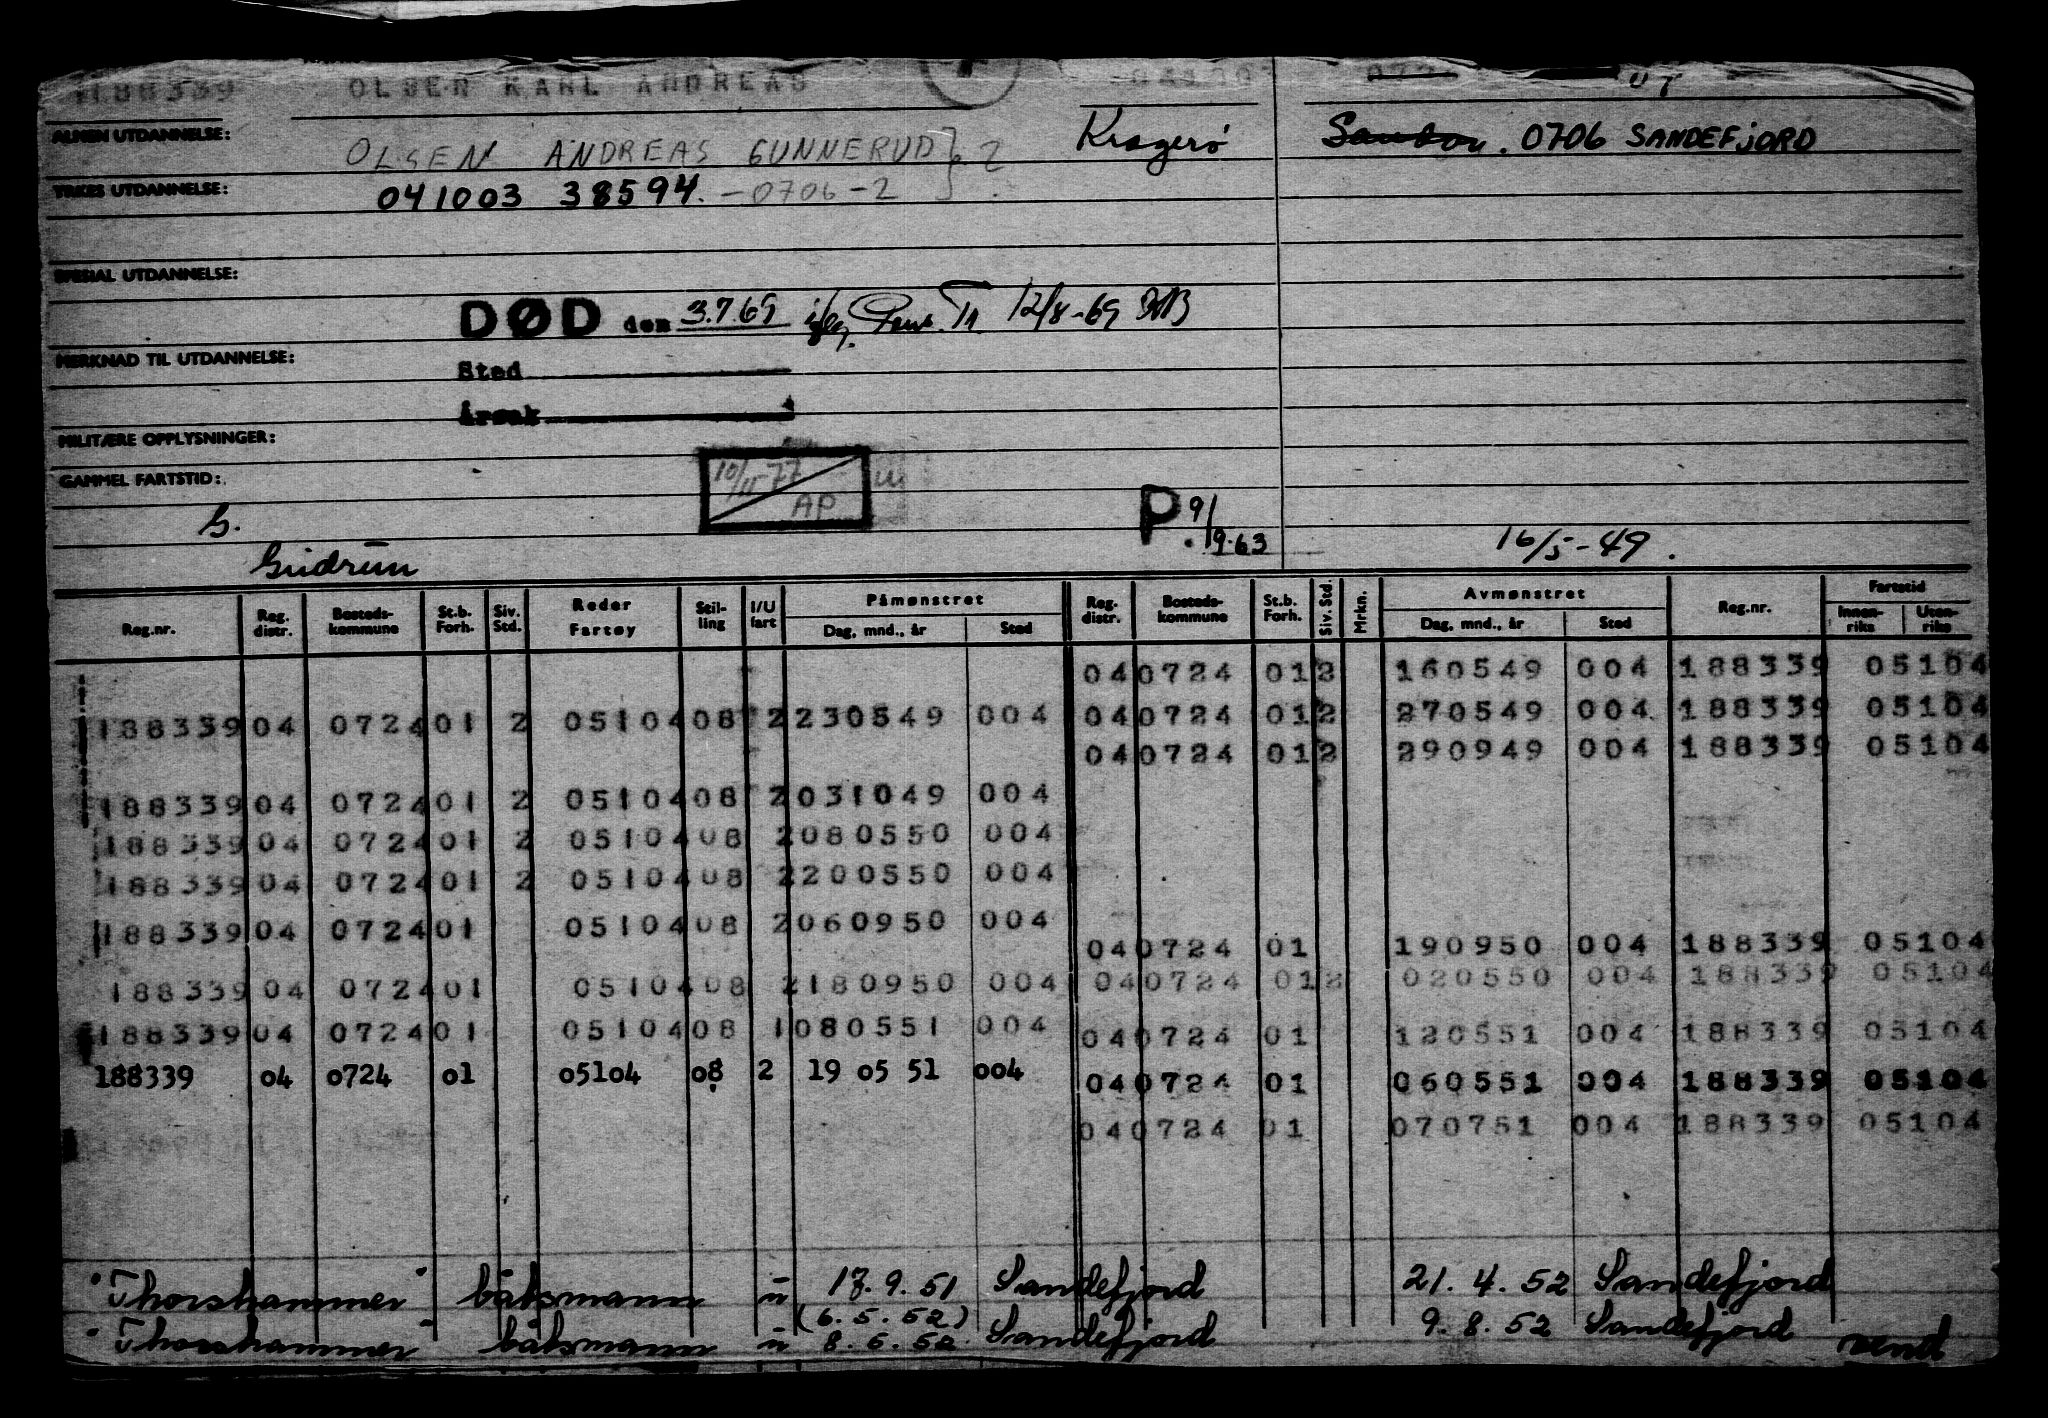 188339 OLSEN KARL ANDREAS
ALMEN UTDANNELSE:
OLSEN ANDREAS GUNNERUD 2 Kragerø 0706 SANDEFJORD
YRKES UTDANNELSE:
041003 38594. -0706-2
SPESIAL UTDANNELSE:
DØD den 3.7.69 12/8-69
MERKNAD TIL UTDANNELSE:
Sted
Årsak
MILITÆRE OPPLYSNINGER:
10/11-77
GAMMEL FARTSTID:
AP
G. P. 9/9.63 16/5-49.
Gudrun
Reg.nr. Reg. distr. Bosteds-kommune St.b. Forh. Siv. Std. Reder Fartøy Stil-ling I/U fart Påmønstret Dag, mnd., år Sted Reg. distr. Bosteds-kommune St.b. Forh. Siv. Std. Mrkn. Avmønstret Dag, mnd., år Sted Reg.nr. Fartstid Innen-riks Uten-riks
04 0724 01 2 160549 004 188339 05104
188339 04 0724 01 2 05104 08 2 230549 004 04 0724 01 2 270549 004 188339 05104
04 0724 01 2 290949 004 188339 05104
188339 04 0724 01 2 05104 08 2 031049 004
188339 04 0724 01 2 05104 08 2 080550 004
188339 04 0724 01 2 05104 08 2 200550 004
188339 04 0724 01 05104 08 2 060950 004
04 0724 01 190950 004 188339 05104
188339 04 0724 01 05104 08 2 180950 004 04 0724 01 2 020550 004 188339 05104
188339 04 0724 01 05104 08 1 080551 004 04 0724 01 120551 004 188339 05104
188339 04 0724 01 05104 08 2 19 05 51 004 04 0724 01 060551 004 188339 05104
04 0724 01 070751 004 188339 05104
"Thorshammer" båtsmann u 17.9.51 Sandefjord 21.4.52 Sandefjord
(6.5.52)
"Thorshammer" båtsmann u 8.5.52 Sandefjord 9.8.52 Sandefjord vend